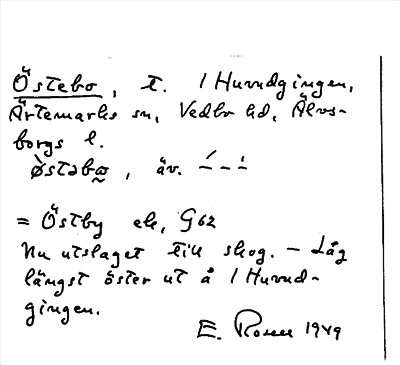 Östebo, t. / Huvudgingen,
Ärtemarks sn, Vedbo hd, Älvs-
borgs l.
östəbo, äv. –́ – –̀
= Östby ek, G62
Nu utslaget till skog. – Låg
längst öster ut å / Huvud-
gingen.
E. Rosell 1949